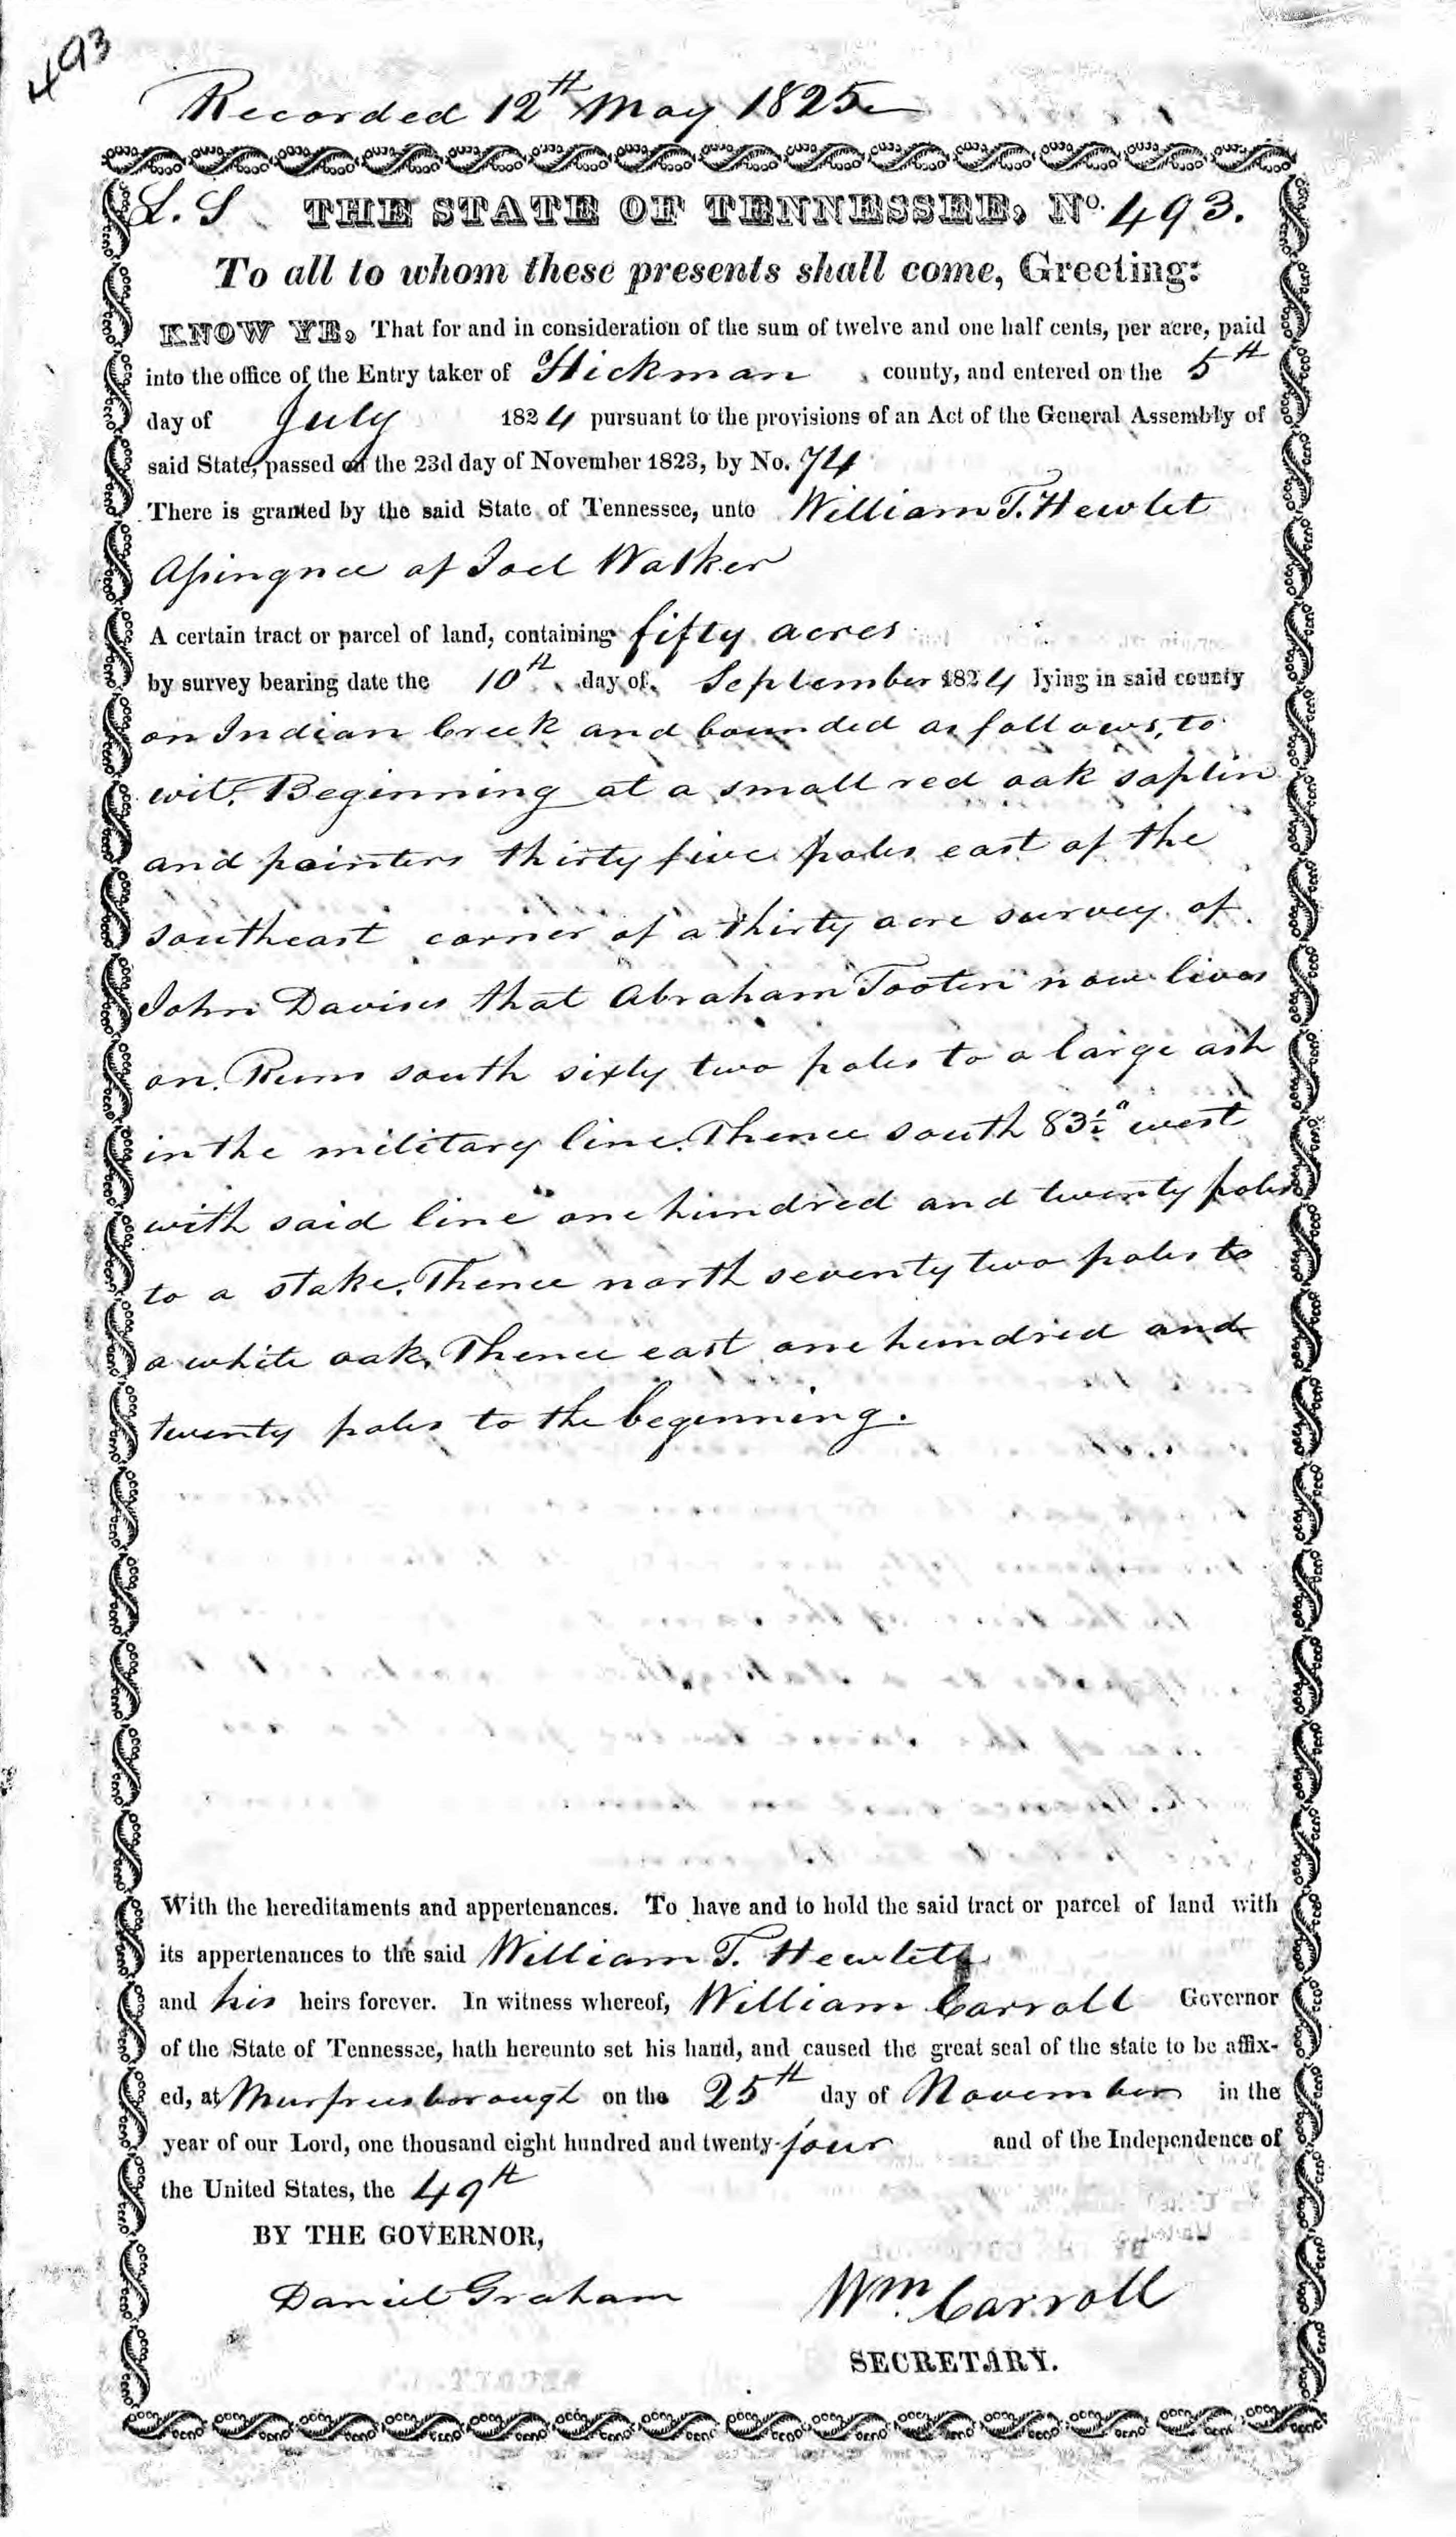 493
Recorded 12th May 1825
L. S THE STATE OF TENNESSEE, No. 493.
To all to whom these presents shall come, Greeting:
KNOW YE, That for and in consideration of the sum of twelve and one half cents, per acre, paid
into the office of the Entry taker of Hickman county, and entered on the 5th
day of July 1824 pursuant to the provisions of an Act of the General Assembly of
said State, passed on the 23d day of November 1823, by No. 74
There is granted by the said State of Tennessee, unto William T. Hewlet
Assingnee of Joel Walker
A certain tract or parcel of land, containing fifty acres
by survey bearing date the 10th day of September 1824 lying in said county
on Indian Creek and bounded as follows, to
wit, Beginning at a small red oak saplin
and pointers thirty five poles east of the
southeast corner of a thirty acre survey of
John Davises that Abraham Tooten now lives
on. Runs south sixty two poles to a large ash
in the military line. Thence south 83½° west
with said line one hundred and twenty poles
to a stake. Thence north seventy two poles to
a white oak, Thence east one hundred and
twenty poles to the beginning.
With the hereditaments and appertenances. To have and to hold the said tract or parcel of land with
its appertenances to the said William T. Hewlett
and his heirs forever. In witness whereof, William Carroll Governor
of the State of Tennessee, hath hereunto set his hand, and caused the great seal of the state to be affix-
ed, at Murfreesborough on the 25th day of November in the
year of our Lord, one thousand eight hundred and twenty-four and of the Independence of
the United States, the 49th
BY THE GOVERNOR,
Daniel Graham Wm. Carroll
SECRETARY.